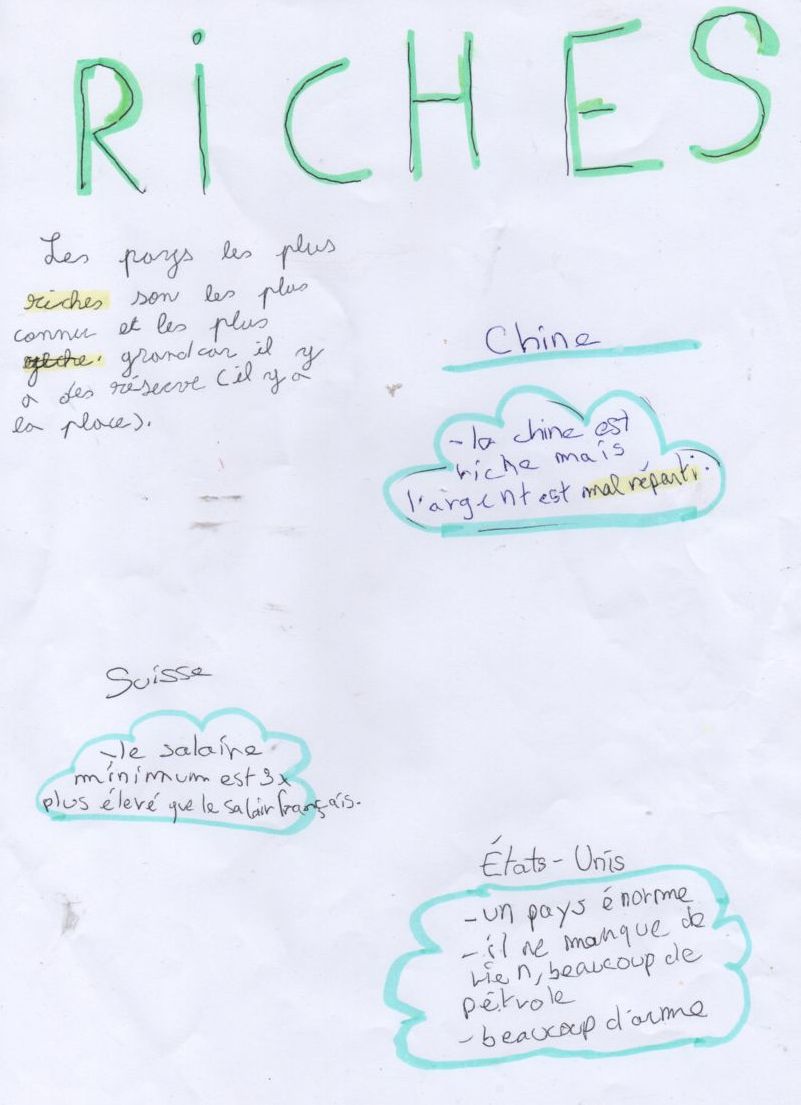 RiCHES
Les pays les plus
riches son les plus
connu et les plus
grand car il y
a des réserve (il y a
la place).
Chine
- la chine est
riche mais
l'argent est mal réparti.
Suisse
- le salaire
minimum est 3x
plus élevé que le salair français.
États-Unis
- un pays énorme
- il ne manque de
rien, beaucoup de
pétrole
- beaucoup d'arme